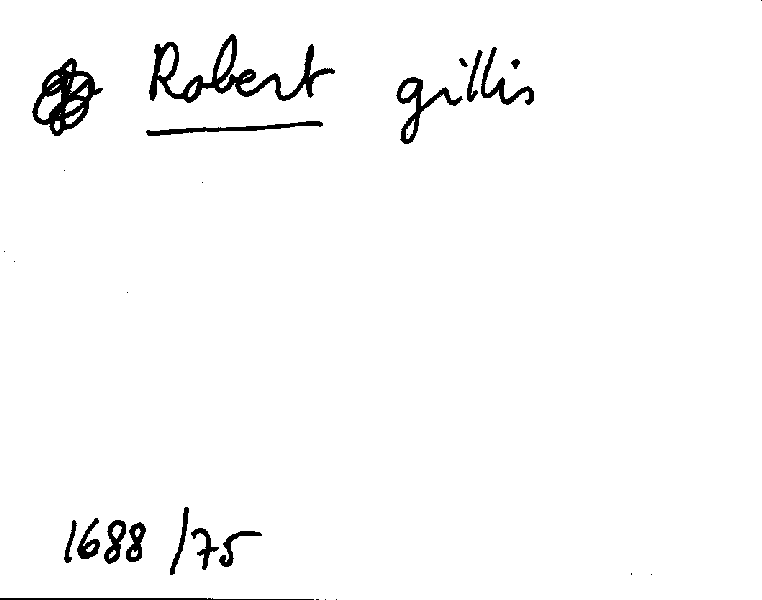 Robert gillis
1688/75